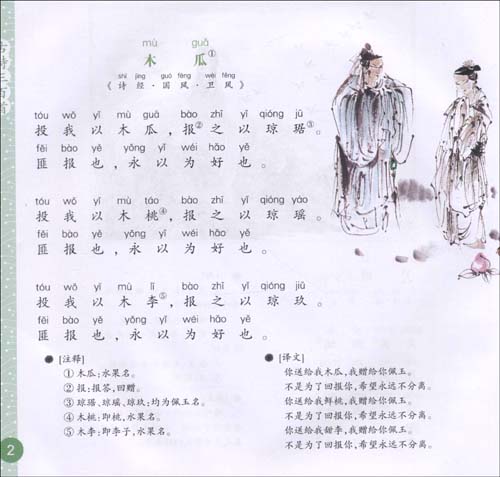 mù guā
木 瓜①
shī jīng guó fēng wèi fēng
《诗经·国风·卫风》
tóu wǒ yǐ mù guā bào zhī yǐ qióng jū
投我以木瓜,报②之以琼琚③。
fěi bào yě yǒng yǐ wéi hǎo yě
匪报也,永以为好也。
tóu wǒ yǐ mù táo bào zhī yǐ qióng yáo
投我以木桃④,报之以琼瑶。
fěi bào yě yǒng yǐ wéi hǎo yě
匪报也,永以为好也。
tóu wǒ yǐ mù lǐ bào zhī yǐ qióng jiǔ
投我以木李⑤,报之以琼玖。
fěi bào yě yǒng yǐ wéi hǎo yě
匪报也,永以为好也。
[注释]
①木瓜:水果名。
②报:报答,回赠。
③琼琚、琼瑶、琼玖:均为佩玉名。
④木桃:即桃,水果名。
⑤木李:即李子,水果名。
[译文]
你送给我木瓜,我赠给你佩玉。
不是为了回报你,希望永远不分离。
你送给我鲜桃,我赠给你佩玉。
不是为了回报你,希望永远不分离。
你送给我甜李,我赠给你佩玉。
不是为了回报你,希望永远不分离。
2